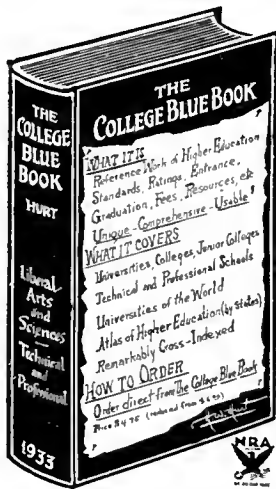 THE
COLLEGE
BLUE
BOOK
HURT
Liberal
Arts
and
Sciences
Technical
and
Professional
1933
THE
COLLEGE BLUE BOOK
WHAT IT IS
Reference Work of Higher Education
Standards, Ratings, Entrance,
Graduation, Fees, Resources, etc
Unique-Comprehensive-Usable!
WHAT IT COVERS
Universities, Colleges, Junior Colleges
Technical and Professional Schools
Universities of the World
Atlas of Higher Education (by States)
Remarkably Cross-Indexed
HOW TO ORDER
Order direct from The College Blue Book
Price $4.75 (reduced from
NRA
WE DO OUR PART